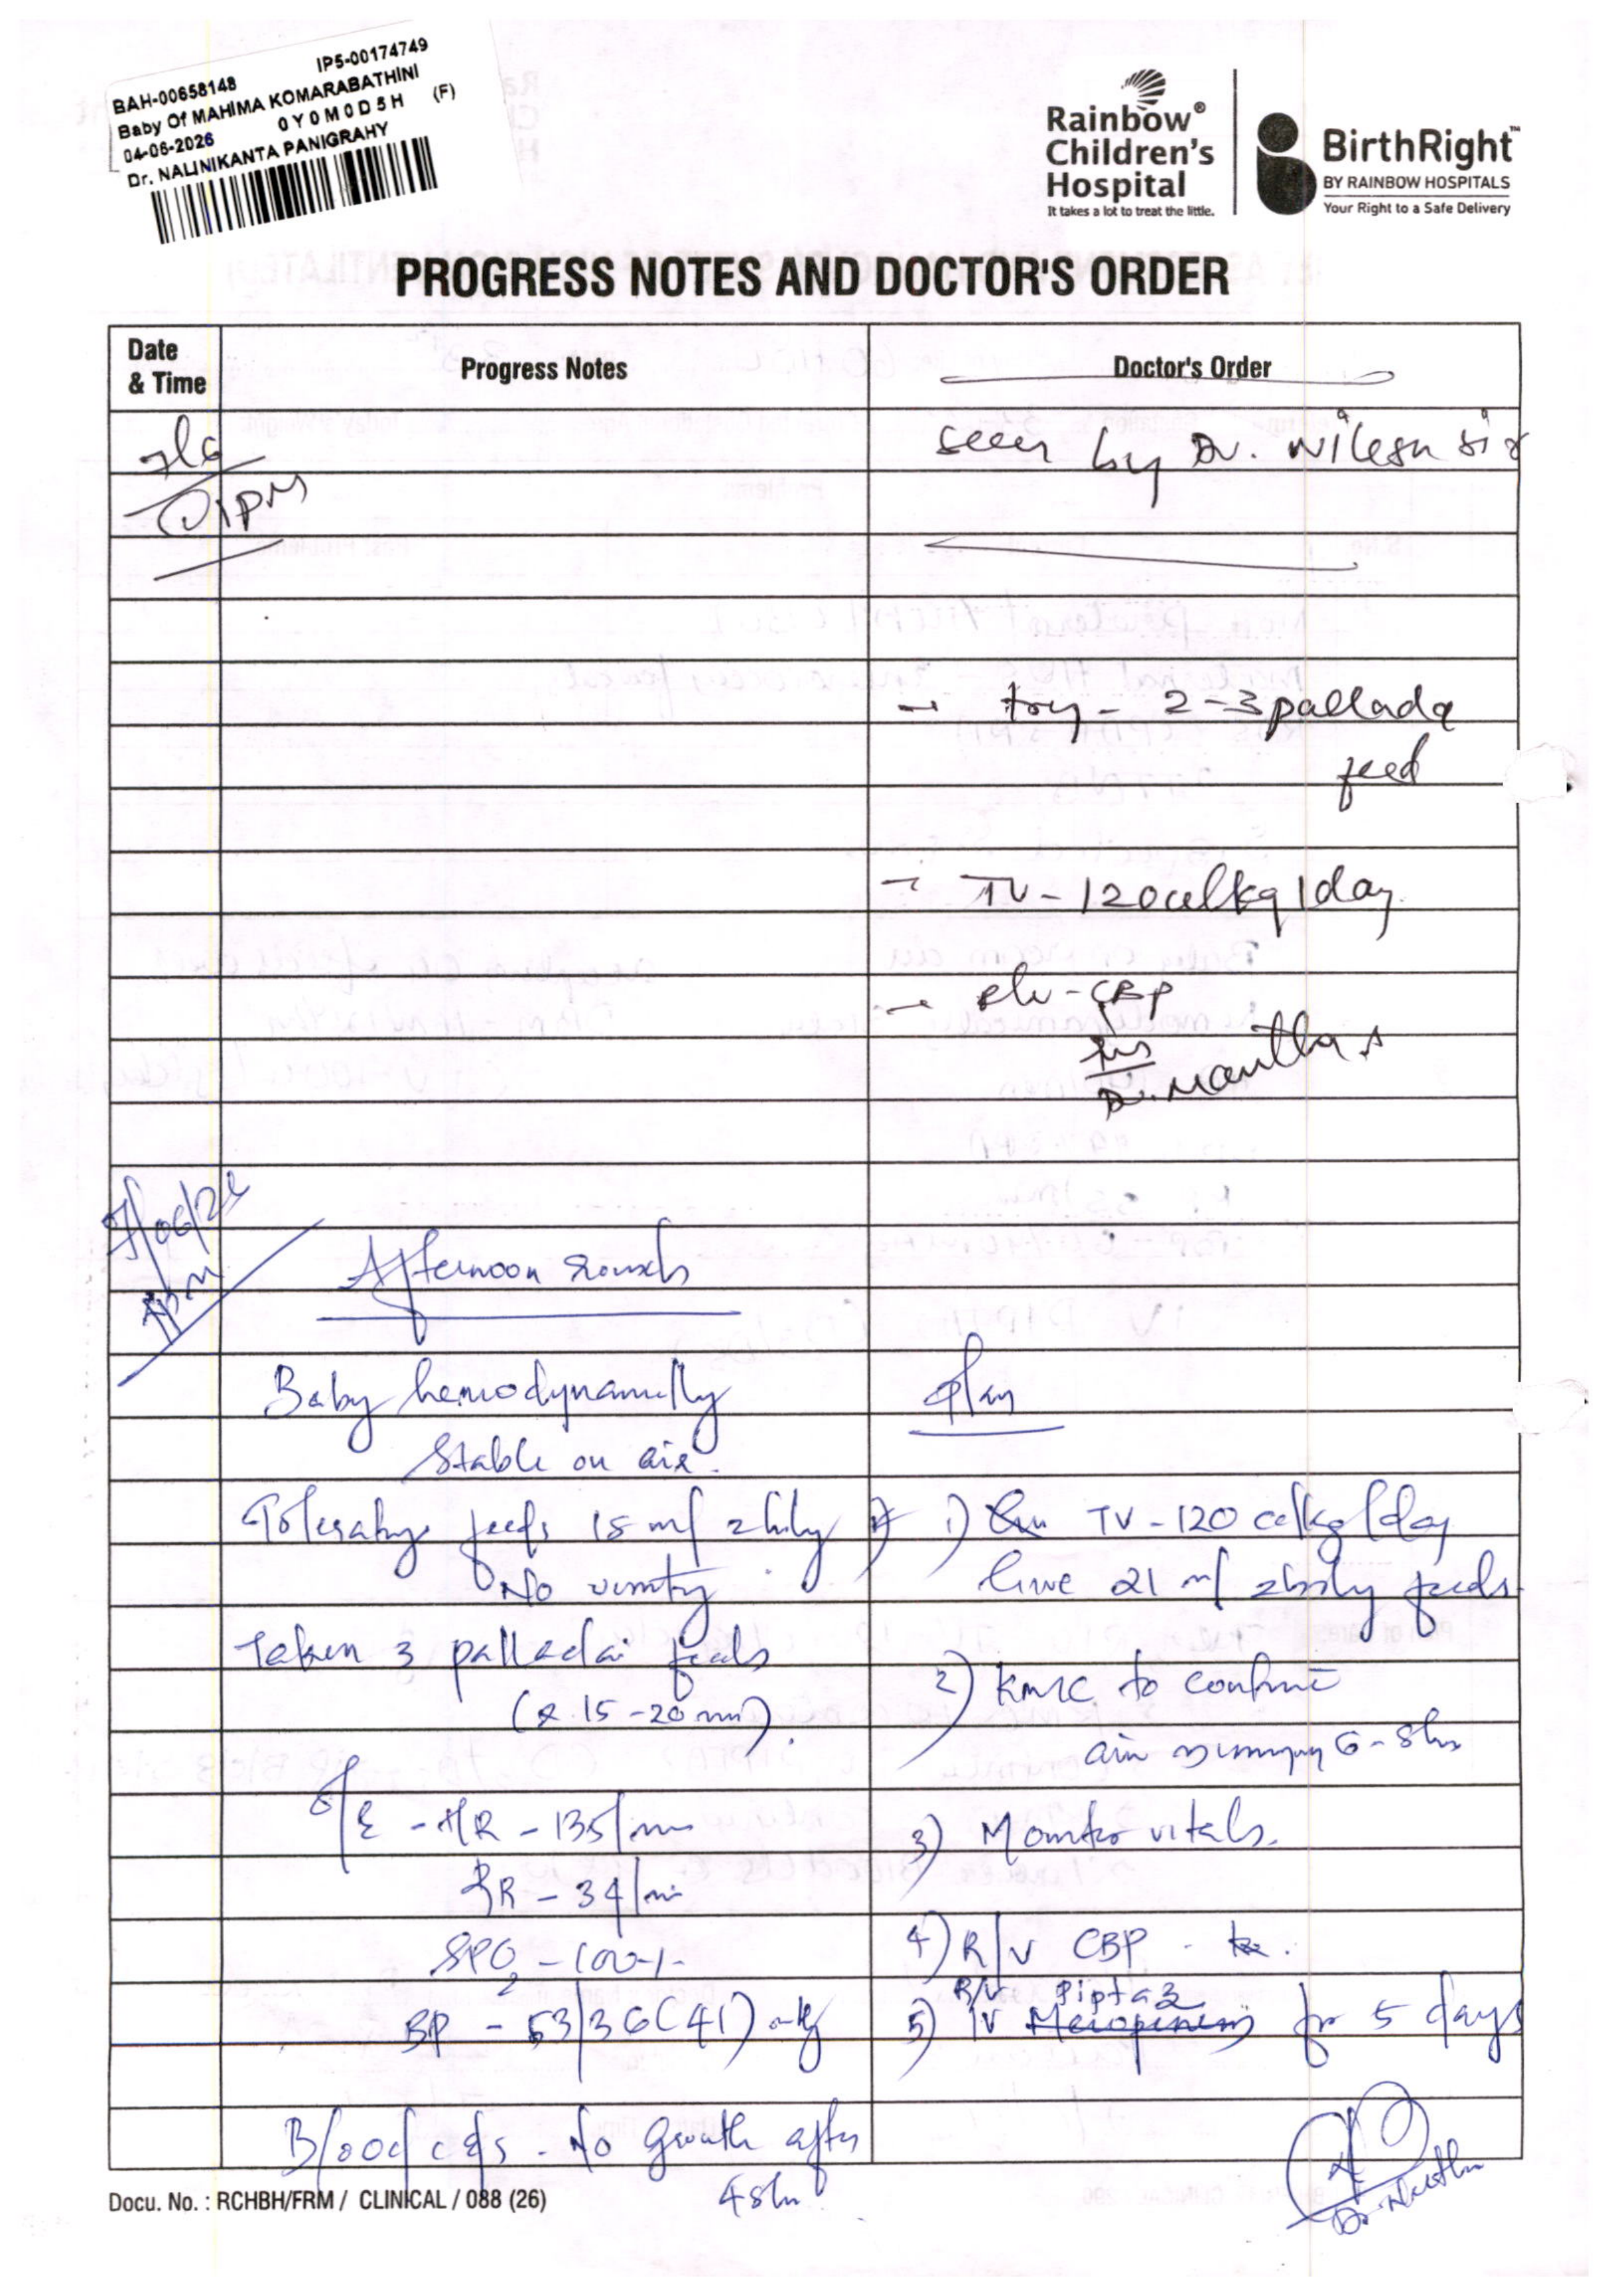 BAH-00658148 IP5-00174749
Baby Of MAHIMA KOMARABATHINI
04-06-2026 0Y0M0D5H (F)
Dr. NALINIKANTA PANIGRAHY
Rainbow®
Children's
Hospital
It takes a lot to treat the little.
BirthRight™
BY RAINBOW HOSPITALS
Your Right to a Safe Delivery
PROGRESS NOTES AND DOCTOR'S ORDER
Date
& Time
Progress Notes
Doctor's Order
7/6
1PM
seen by Dr. Nilesh sir
→ try - 2-3 pallada
feed
- TV - 120cc/kg/day
- R/v - CBP
Dr. Mantha
7/06/26
Afternoon rounds
Baby hemodynamilly
Stable on air.
plan
Tolerating feeds 15 ml 2hrly
No vomity
1) TV - 120 cc/kg/day
Give 21 ml 2hrly feeds.
Taken 3 palladai feeds
(x 15-20 min).
2) KMC to continue
aim 6-8hrs
O/E - HR - 135/min
3) Monitor vitals.
RR - 34/min
SPO2 - 100%
4) R/V CBP -
BP - 53/36 (41) mmHg
R/V Piptaz
5) IV Meropenem for 5 days
Blood c&s - No growth after
48hr
Docu. No. : RCHBH/FRM / CLINICAL / 088 (26)